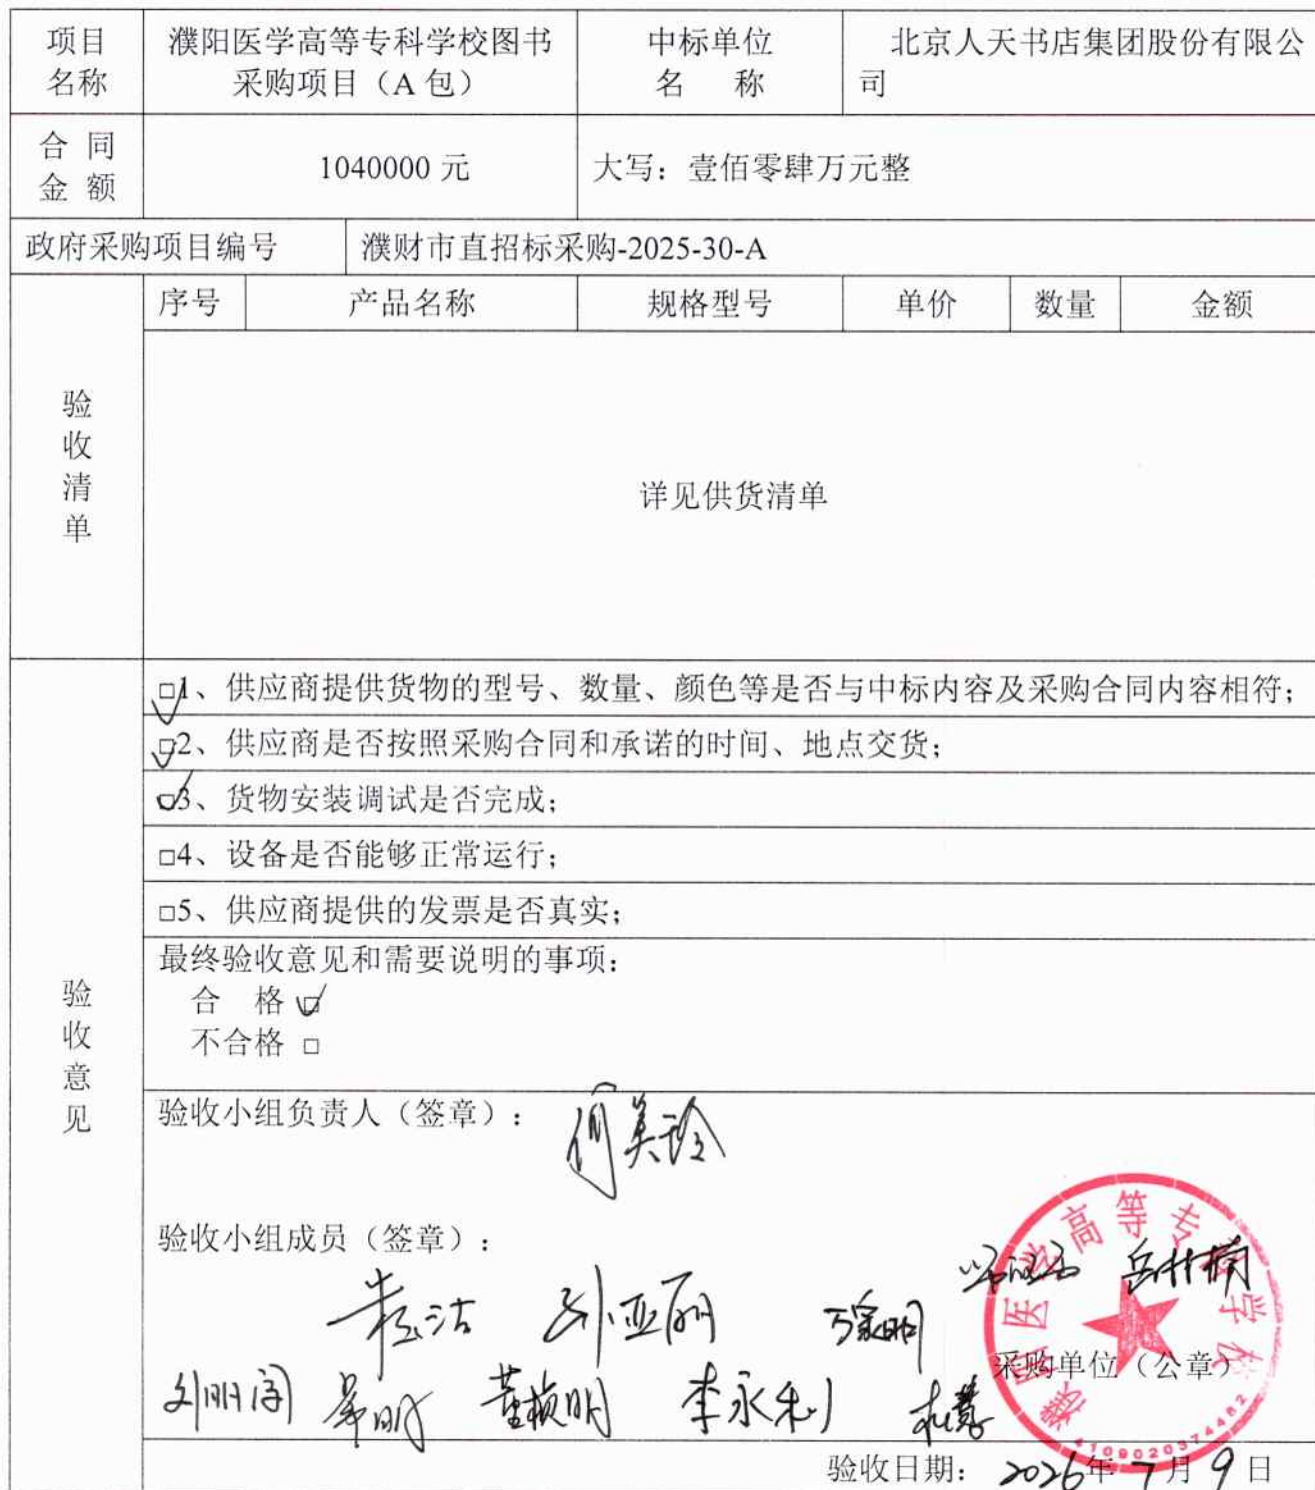 项目名称
濮阳医学高等专科学校图书采购项目（A 包）
中标单位名 称
北京人天书店集团股份有限公司
合同金额
1040000 元
大写：壹佰零肆万元整
政府采购项目编号
濮财市直招标采购-2025-30-A
验收清单
序号 产品名称 规格型号 单价 数量 金额
详见供货清单
验收意见
□1、供应商提供货物的型号、数量、颜色等是否与中标内容及采购合同内容相符；
□2、供应商是否按照采购合同和承诺的时间、地点交货；
□3、货物安装调试是否完成；
□4、设备是否能够正常运行；
□5、供应商提供的发票是否真实；
最终验收意见和需要说明的事项：
合 格 □
不合格 □
验收小组负责人（签章）：
验收小组成员（签章）：
孙亚丽
李永利
采购单位（公章）
濮阳医学高等专科学校
4109020374482
验收日期： 2026年 7月 9日